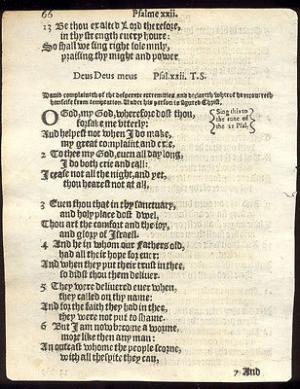 66 Psalme xxii.
13 Be thou exalted Lord therefore,
in thy strength euery houre:
So shall we sing right solemnly,
praising thy might and power.
Deus Deus meus Psal. xxii. T.S.
Dauid complaineth of the desperate extremities, and declareth wherof he recouereth
himselfe from temptation. Under his person is figured Christ.
O God, my God, wherefore dost thou,
forsake me vtterly:
Sing this to
the tune of
the 21 Psal.
And helpest not when I do make,
my great complaint and crie.
2 To thee my God, euen all day long,
I do both crie and call:
I cease not all the night, and yet,
thou hearest not at all.
3 Euen thou that in thy sanctuary,
and holy place dost dwel,
Thou art the comfort and the ioy,
and glory of Israel.
4 And he in whom our Fathers old,
had all their hope for euer:
And when they put their trust in thee,
so didst thou them deliuer.
5 They were deliuered euer when,
they called on thy name:
And for the faith they had in thee,
they were not put to shame.
6 But I am now become a worme,
more like then any man:
An outcast whome the people scorne,
with all the spite they can,
7 And